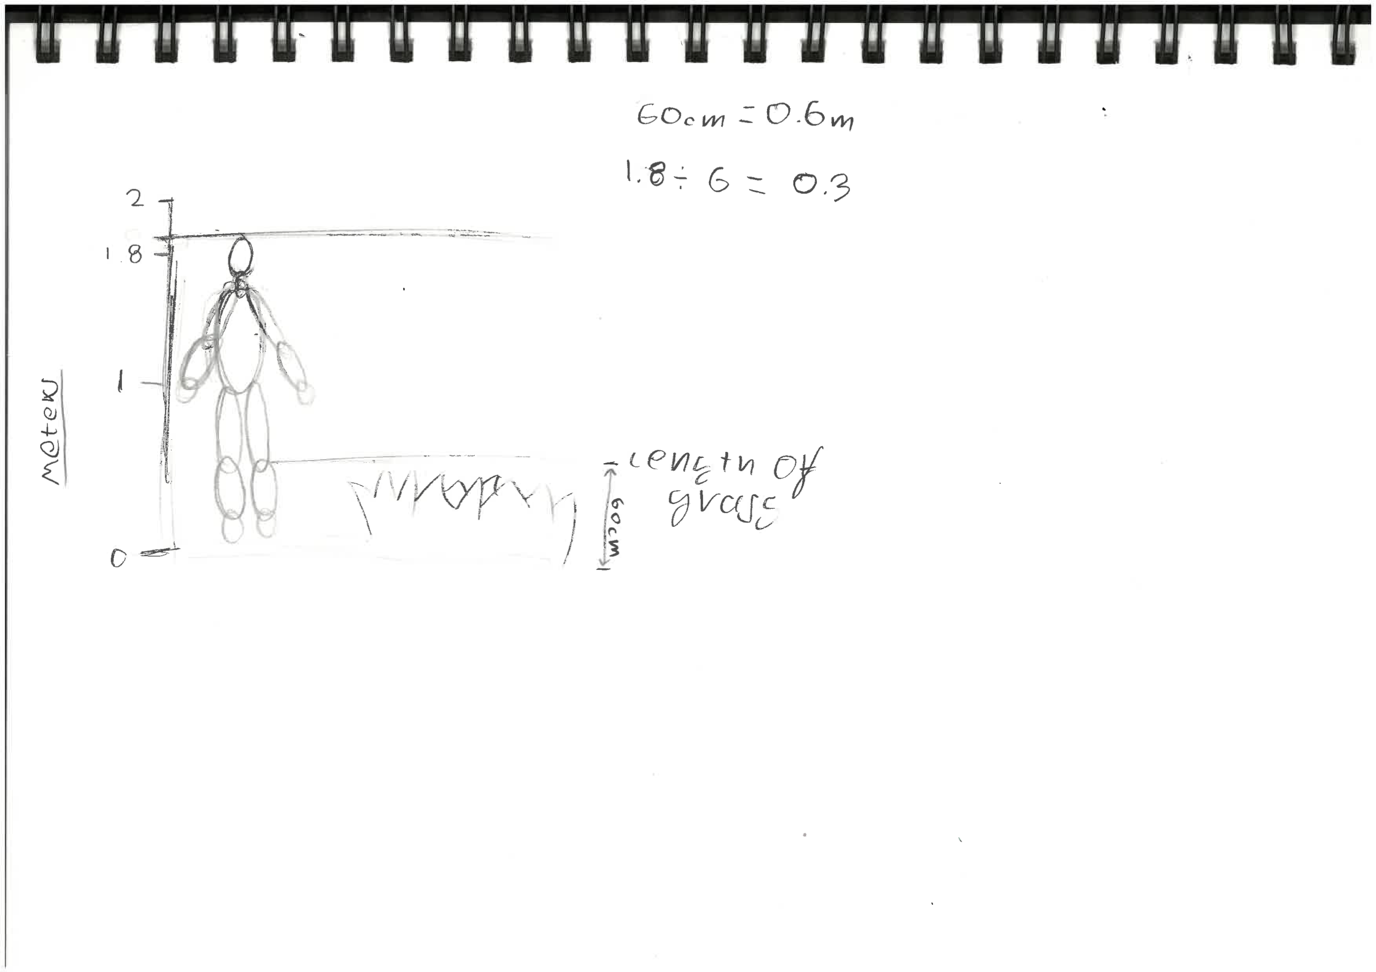 60cm = 0.6m
1.8 ÷ 6 = 0.3
2
1.8
1
0
meters
Length of
grass
60cm